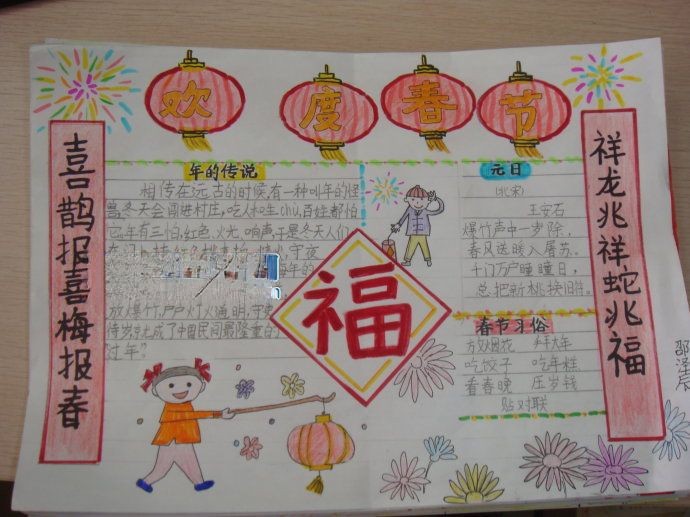 欢度春节
喜鹊报喜梅报春
祥龙兆祥蛇兆福
年的传说
相传在远古的时候,有一种叫年的怪
兽,冬天会闯进村庄,吃人和生chu,百姓都怕
它,年有三怕,红色,火光,响声于是冬天人们
守夜
放爆竹,户户灯火通明,守
成了中国民间最隆重的
过年”
福
元日
(北宋)
王安石
爆竹声中一岁除,
春风送暖入屠苏。
千门万户曈曈日,
总把新桃换旧符。
春节习俗
方欠烟花 拜大年
吃饺子 吃年糕
看春晚 压岁钱
贴对联